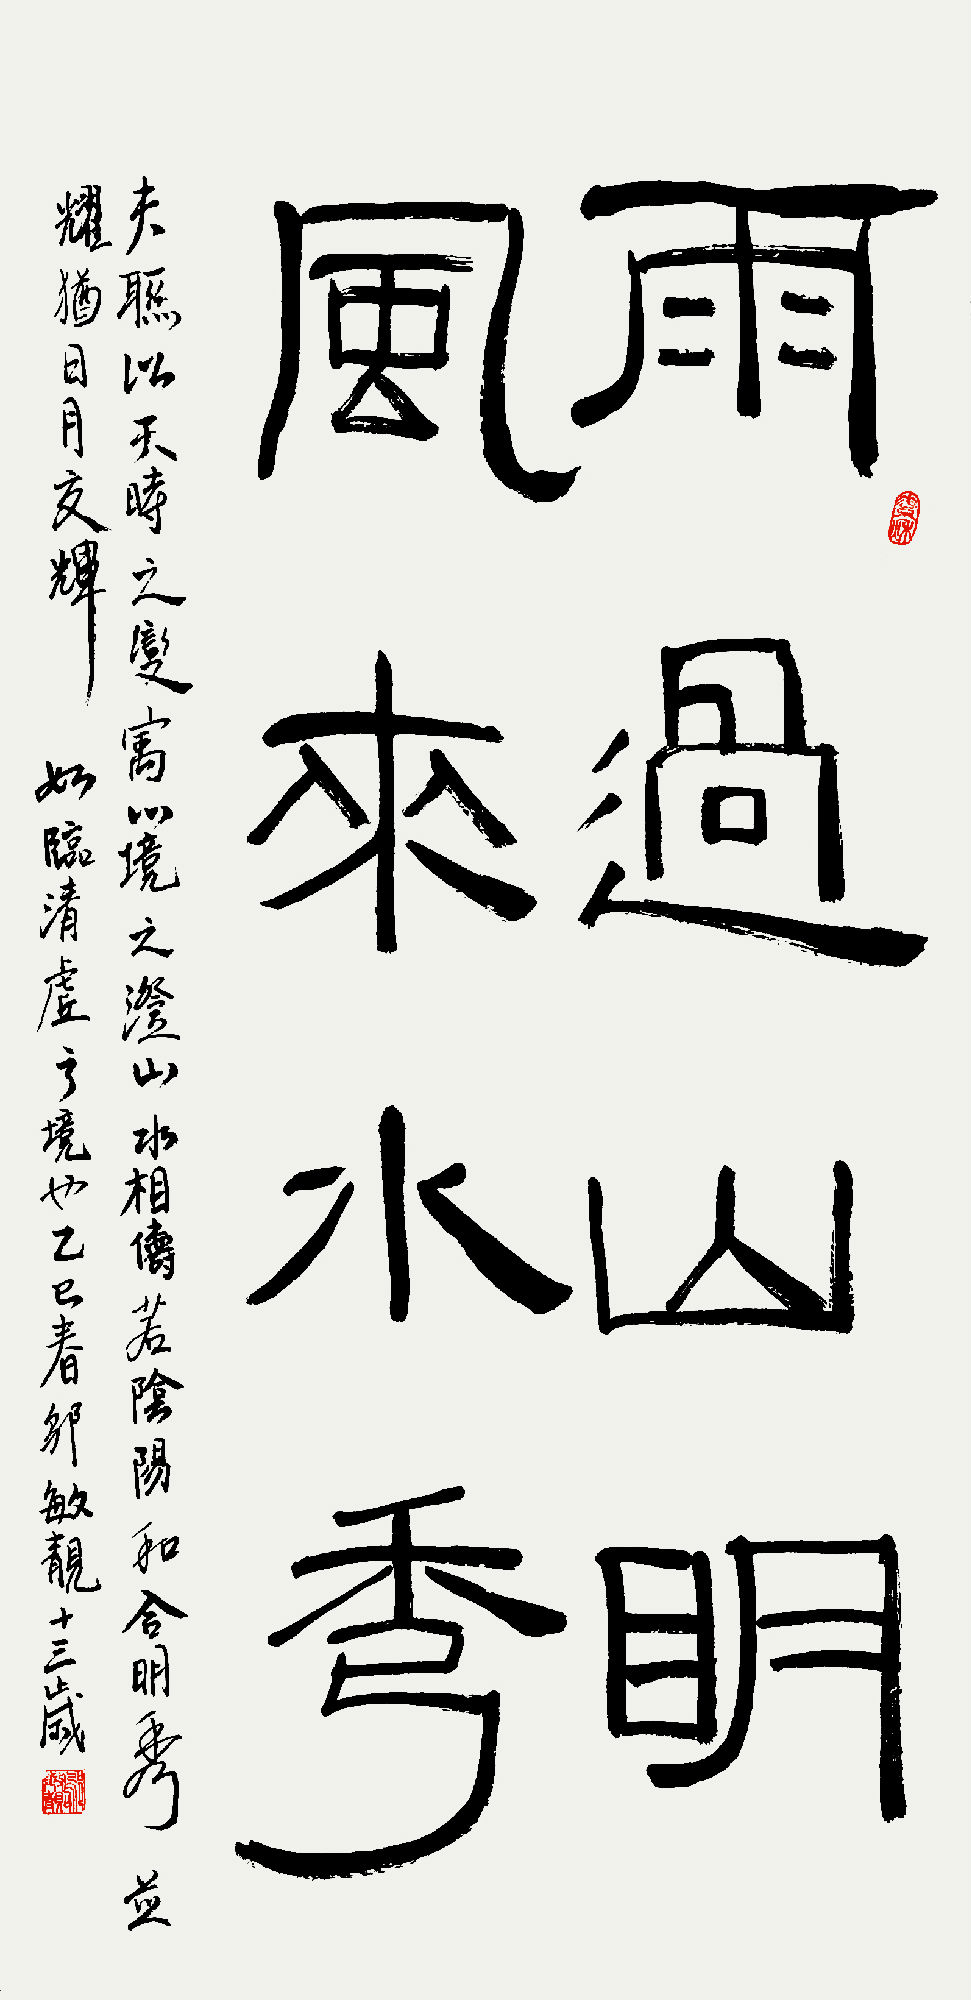 雨過山明
風來水秀
夫聯以天時之變寓心境之澄山水相儔若陰陽和合明秀並
耀猶日月交輝 如臨清虛之境也乙巳春邬敏靚十三歲